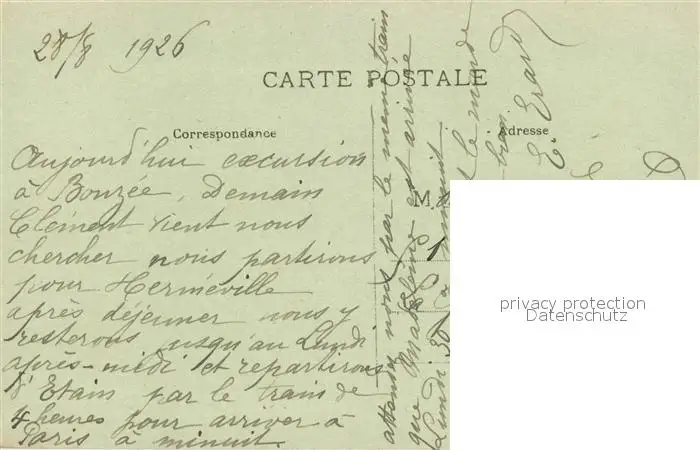 28/8 1926
CARTE POSTALE
Correspondance
Adresse
Aujourd'hui excursion
à Bonzée, Demain
Clément vient nous
chercher nous partirons
pour Herméville
après déjeuner nous y
resterons jusqu'au Lundi
après-midi et repartirons
d'Etain par le train de
4 heures pour arriver à
Paris à minuit.
attendez nous par le même train
que Madeleine est arrivée
Lundi 30 à minuit
le monde
E. Erard
M
privacy protection
Datenschutz